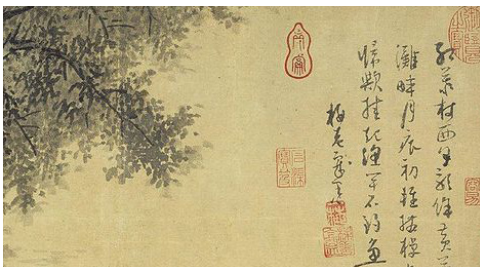 紅葉村西夕影餘黃
灘畔月痕初輕撥棹
歸歟挂起漁竿不釣魚
梅老戲墨